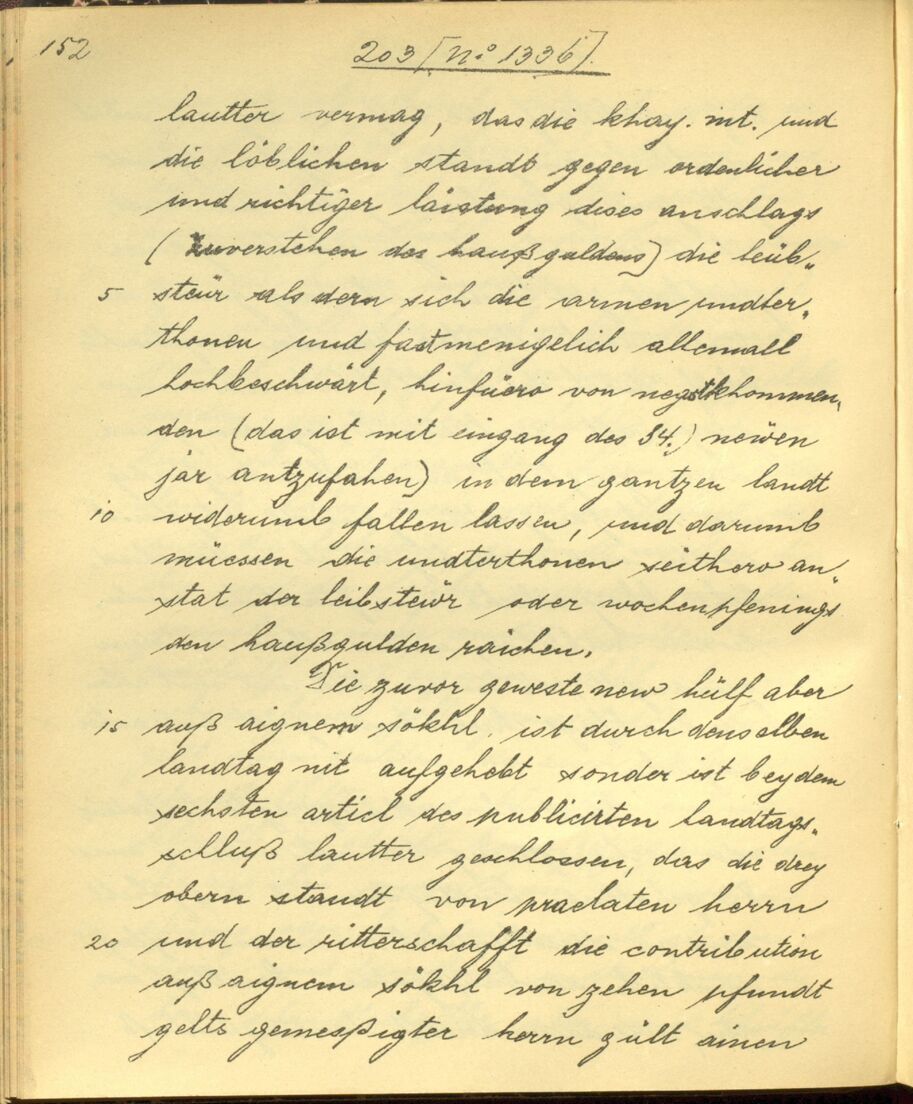 152
203 [No 1336].
lautter vermag, das die khay. mt. und
die löblichen standt gegen ordenlicher
und richtiger läistung dises anschlags
(zuverstehen des haußguldens) die leüb„
5 steür als dern sich die armen undter„
thonen und fast menigelich allemall
hochbeschwärt, hinfüero von negstkhommen„
den (das ist mit eingang des 34.) newen
jar antzufahen) in dem gantzen landt
10 widerumb fallen lassen, und darumb
müessen die undterthonen seithero an„
stat der leibsteür oder wochenpfenings
den haußgulden raichen.
Die zuvor geweste new hülf aber
15 auß aignem sökhl. ist durch denselben
landtag nit aufgehebt sonder ist bey dem
sechsten articl des publicirten landtags„
schluß lautter geschlossen, das die drey
obern standt von praelaten herrn
20 und der ritterschafft die contribution
auß aignem sökhl von zehen pfundt
gelts gemeßigter herrn gült ainen